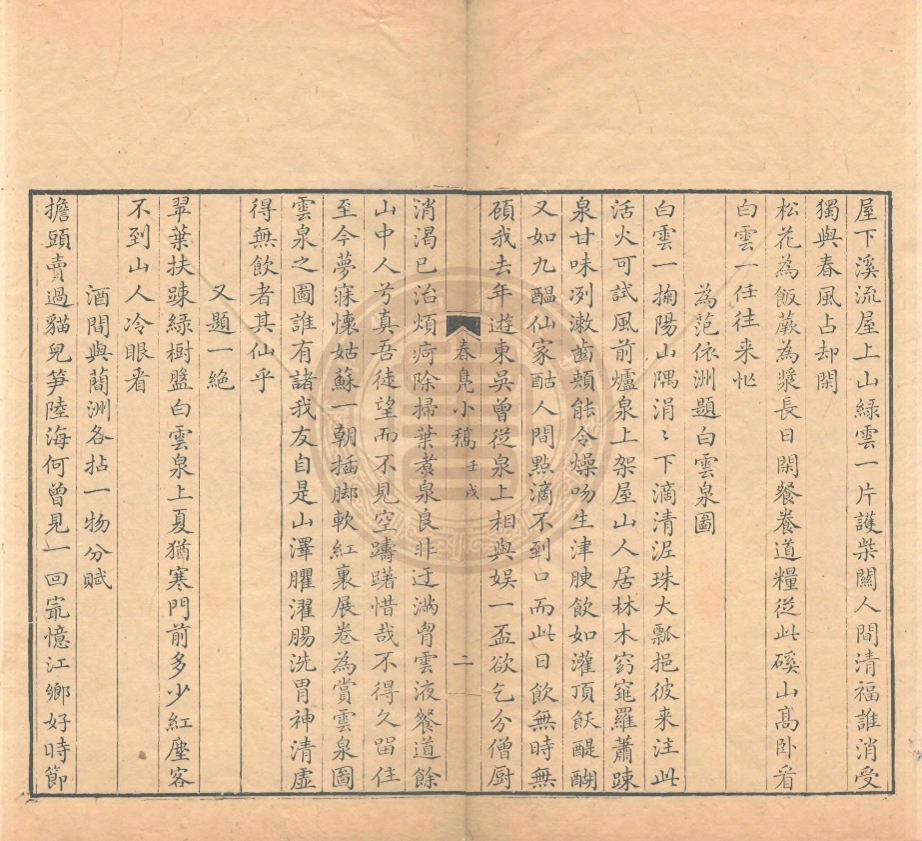 屋下溪流屋上山綠雲一片護柴關人間清福誰消受
獨與春風占却閑
松花為飯蕨為漿長日閑餐養道糧從此磎山高卧看
白雲一任往来忙
為范依洲題白雲泉圖
白雲一掬陽山隅涓〻下滴清泥珠大瓢挹彼来注此
活火可試風前爐泉上架屋山人居林木窈窕羅蕭踈
泉甘味冽漱齒頰能令燥吻生津腴飲如灌頂飫醍醐
又如九醖仙家酤人間點滴不到口而此日飲無時無
碩我去年遊東吳曾從泉上相與娱一盃欲乞分僧厨
春鳧小稿 壬戌
二
消渴已治煩疴除掃葉煮泉良非迂滿胷雲液餐道餘
山中人兮真吾徒望而不見空躊躇惜哉不得久畱住
至今夢寐懷姑蘇一朝插脚軟紅裏展卷為賞雲泉圖
雲泉之圖誰有諸我友自是山澤臞濯腸洗胃神清虛
得無飲者其仙乎
又題一絶
翠葉扶踈綠樹盤白雲泉上夏猶寒門前多少紅塵客
不到山人冷眼看
酒間與蘭洲各拈一物分賦
擔頭賣過貓兒笋陸海何曾見一回冣憶江鄉好時節